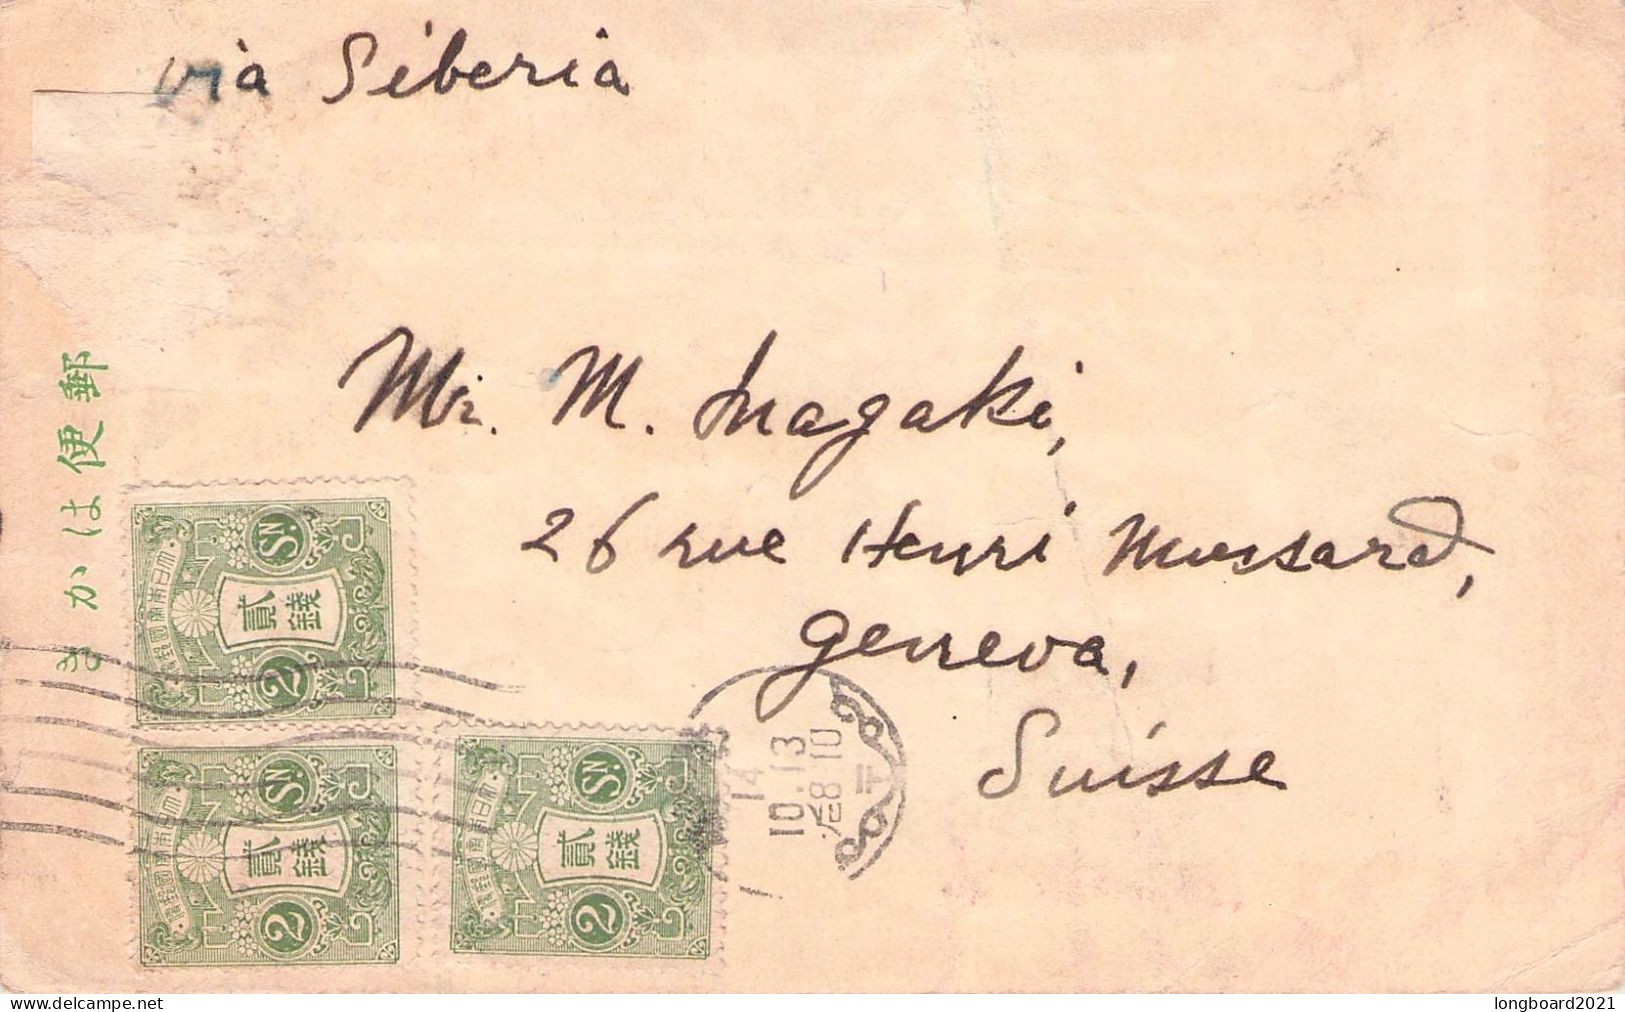 via Siberia
郵便はかき
Mr. M. Inagaki,
26 rue Henri Mussard,
Geneva,
Suisse
大日本帝國郵便
SN.
貳錢
2
大日本帝國郵便
SN.
貳錢
2
大日本帝國郵便
SN.
貳錢
2
14
10.13
8-10
delcampe.net
longboard2021